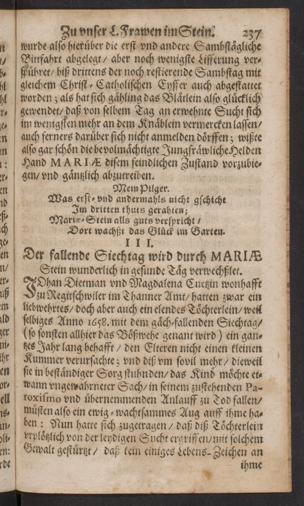 Zu vnser L. Frawen im Stein. 237
wurde also hierüber die erst vnd andere Sambstägliche
Bittfahrt abgelegt / aber noch wenigste Lifferung ver-
spühret / biß drittens der noch restierende Sambstag mit
gleichem Christ-Catholischen Eyffer auch abgestattet
worden; als hat sich gähling das Blätlein also glücklich
gewendet / daß von selbem Tag an erwehnte Sucht sich
im wenigsten mehr an dem Knäblein vermercken lassen /
auch ferners darüber sich nicht anmelden dörffen; wißte
also gar schön die bevolmächtigte Jungfräwliche Helden
Hand MARIÆ disem feindlichen Zustand vorzubie-
gen / vnd gäntzlich abzutreiben.
Mein Pilger.
Was erst- vnd andermahls nicht gschicht
Im dritten thuts gerahten;
Mariæ-Stein alls guts verspricht /
Dort wachßt das Glück im Garten.
III.
Der fallende Siechtag wird durch MARIÆ
Stein wunderlich in gesunde Täg verwechßlet.
JOhan Dietman vnd Magdalena Cutzin wonhafft
zu Regitschwiler im Thanner Amt / hatten zwar ein
liebwehrtes / doch aber auch ein elendes Töchterlein / weil
selbiges Anno 1658. mit dem gäch-fallenden Siechtag /
(so sonsten allhier das Bößwehe genant wird) ein gan-
tzes Jahr lang behafft / den Elteren nicht einen kleinen
Kummer verursachte; vnd deß vm sovil mehr / dieweil
sie in beständiger Sorg stuhnden / das Kind möchte et-
wann vngewahrneter Sach / in seinem zustehenden Pa-
roxismo vnd übernemmenden Anlauff zu Tod fallen /
müsten also ein ewig-wachtsammes Aug auff ihme ha-
ben: Nun hatte sich zugetragen / daß diß Töchterlein
vrplötzlich von der leydigen Sucht ergriffen / mit solchem
Gewalt gestürtzt / daß kein einiges Lebens-Zeichen an
ihme